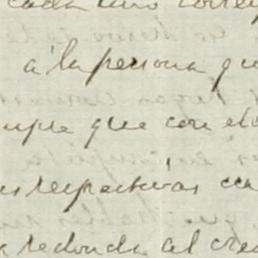 cada uno corres
a la persona qu
mpre que con el
us respectivas cu
a redonda al cre